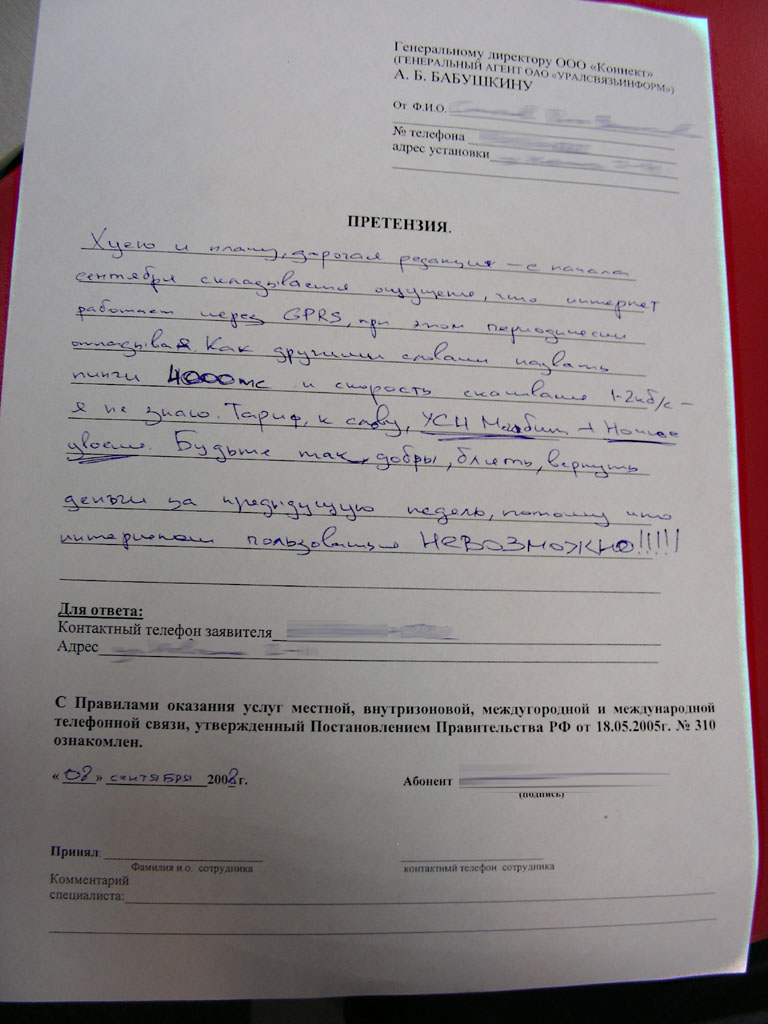 Генеральному директору ООО «Коннект»
(ГЕНЕРАЛЬНЫЙ АГЕНТ ОАО «УРАЛСВЯЗЬИНФОРМ»)
А. Б. БАБУШКИНУ
От Ф.И.О.
№ телефона
адрес установки
ПРЕТЕНЗИЯ.
Хуею и плачу, дорогая редакция – с начала
сентября складывается ощущение, что интернет
работает через GPRS, при этом периодически
отпадывая. Как другими словами назвать
пинги 4000mc и скорость скачивания 1-2кб/с –
я не знаю. Тариф, к слову, УСИ + Ночное
. Будьте так добры, блять, вернуть
деньги за предыдущую неделю, потому что
интернетом пользоваться НЕВОЗМОЖНО!!!!!
Для ответа:
Контактный телефон заявителя
Адрес
С Правилами оказания услуг местной, внутризоновой, междугородной и международной
телефонной связи, утвержденный Постановлением Правительства РФ от 18.05.2005г. № 310
ознакомлен.
« 08 » сентября 2008г. Абонент
(подпись)
Принял:
Фамилия и.о. сотрудника контактный телефон сотрудника
Комментарий
специалиста: